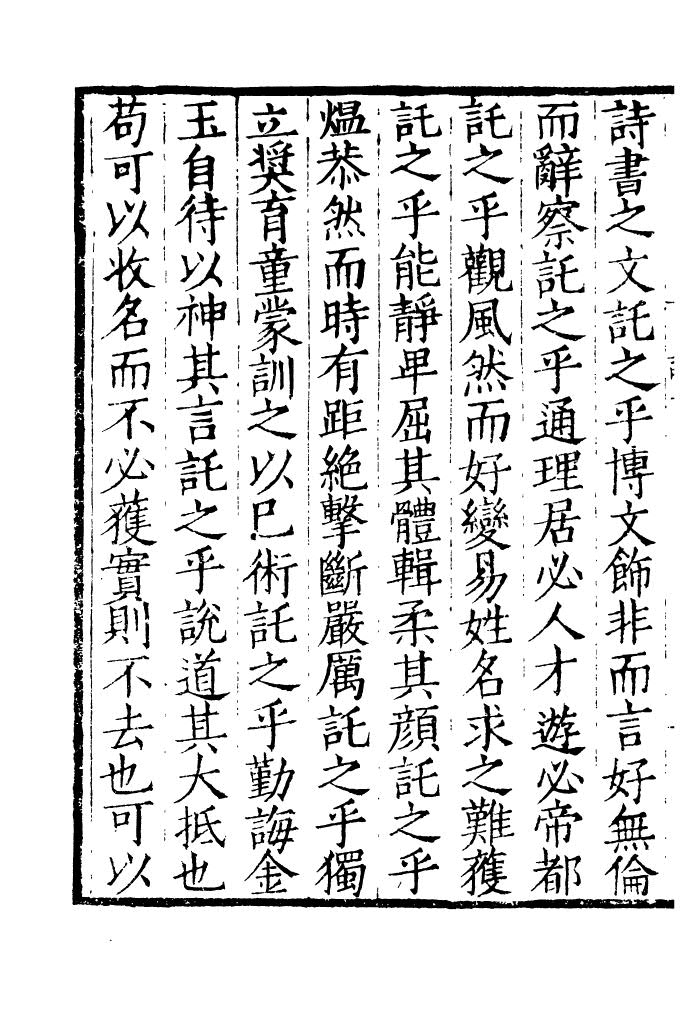 詩書之文託之乎博文飾非而言好無倫
而辭察託之乎通理居必人才遊必帝都
託之乎觀風然而好變易姓名求之難獲
託之乎能靜卑屈其體輯柔其顔託之乎
熅恭然而時有距絶擊斷嚴厲託之乎獨
立奬育童蒙訓之以巳術託之乎勤誨金
玉自待以神其言託之乎說道其大抵也
苟可以收名而不必獲實則不去也可以